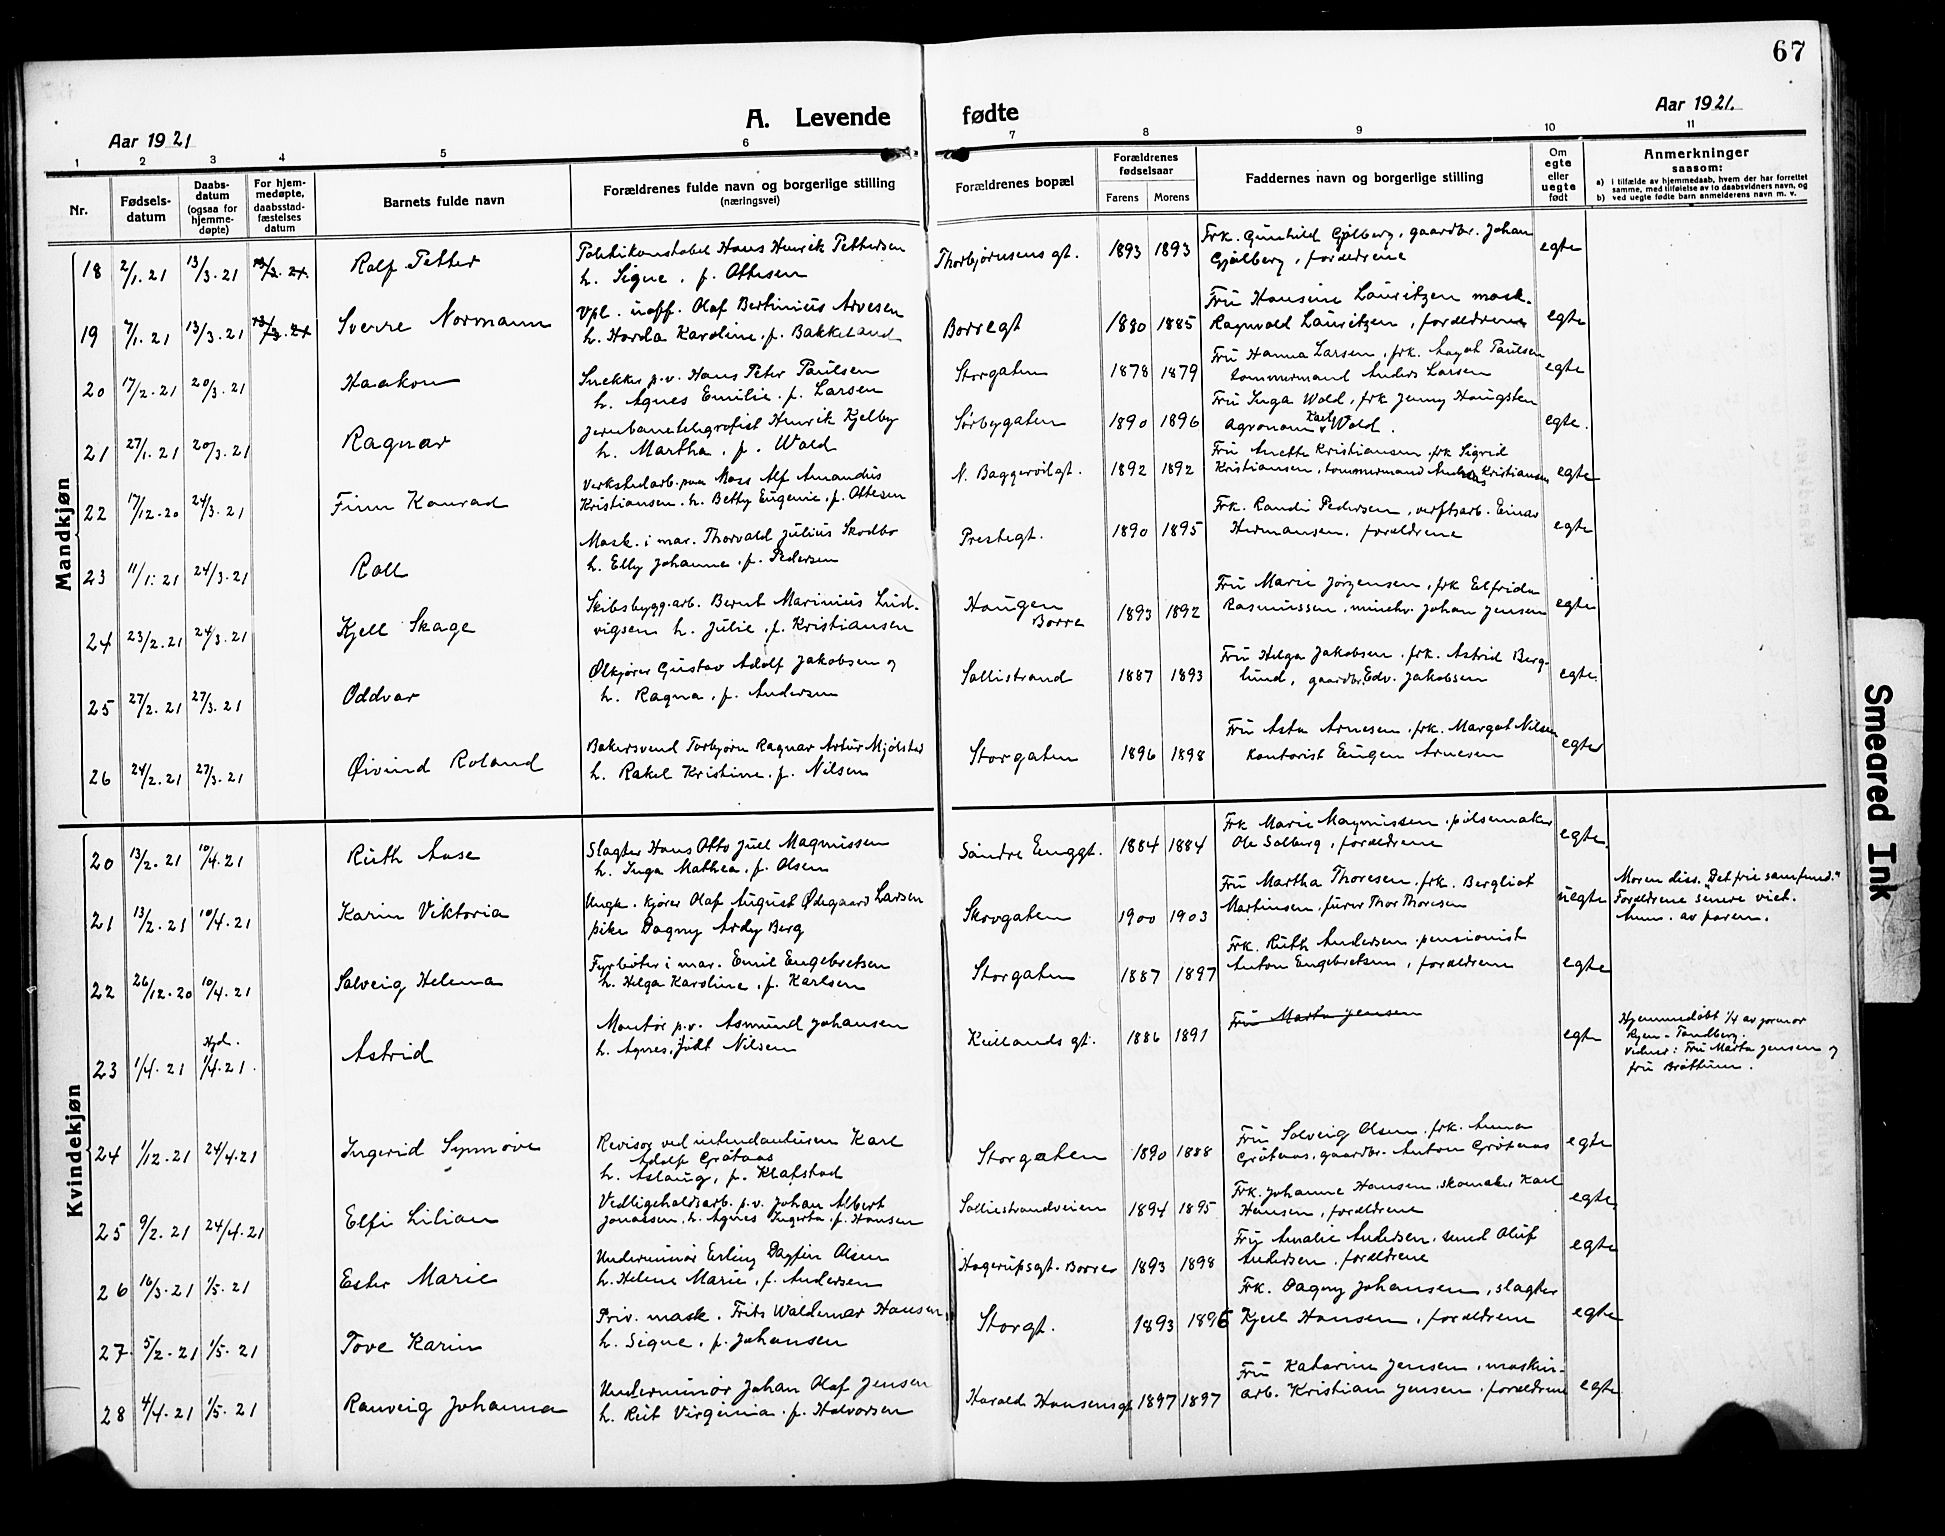 67
Aar 1921
A. Levende fødte
Aar 1921.
1 2 3 4 5 6 7 8 9 10 11
Nr.
Fødsels-
datum
Daabs-
datum
(ogsaa for
hjemme-
døpte)
For hjem-
medøpte,
daabsstad-
fæstelses
datum
Barnets fulde navn
Forældrenes fulde navn og borgerlige stilling
(næringsvei)
Forældrenes bopæl
Forældrenes
fødselsaar
Farens Morens
Faddernes navn og borgerlige stilling
Om
egte
eller
uegte
født
Anmerkninger
saasom:
a) i tilfælde av hjemmedaab, hvem der har forrettet
samme, med tilføielse av to daabsvidners navn, og
b) ved uegte fødte barn anmelderens navn m. v.
Mandkjøn
18 2/1.21 13/3.21 13/3.21 Rolf Petter
Politikonstabel Hans Henrik Pettersen
h. Signe, f. Ottesen
Thorbjørnsens gt. 1893 1893
Frk. Gunhild Gjølberg, gaardbr. Johan
Gjølberg, forældrene
egte
19 7/1.21 13/3.21 13/3.21 Sverre Normann
Vpl. uoff. Olaf Bertinius Arvesen
h. Horda Karoline, f. Bakkeland
Borregt 1880 1885
Fru Hansine Lauritzen mask.
Ragnvald Lauritzen, forældrene
egte
20 17/2.21 20/3.21 Haakon
Snekker p.v. Hans Peter Paulsen
h. Agnes Emilie, f. Larsen
Storgaten 1878 1879
Fru Hanna Larsen, frk. Aagot Paulsen
tømmermand Anders Larsen
egte
21 27/1.21 20/3.21 Ragnar
Jernbanetelegrafist Henrik Kjelby
h. Martha, f. Wold
Sørbygaten 1890 1896
Fru Inga Wold, frk Jenny Haugsten
agronom Karl Wold.
egte.
22 17/12-20 24/3.21 Finn Konrad
Verkstedarb. paa Moss Alf Amandus
Kristiansen, h. Betty Eugenie, f. Ottesen
N. Baggerødgt. 1892 1892
Fru Anette Kristiansen, frk Sigrid
Kristiansen, tømmermand Anders Kristiansen
egte
23 11/1.21 24/3.21 Roll
Mask. i mar. Thorvald Julius Skodbo
h. Elly Johanne, f. Pedersen
Prestegt. 1890 1895
Frk. Randi Pedersen, verftsarb. Einar
Hermansen, forældrene
egte
24 23/2.21 24/3.21 Kjell Skage
Skibsbygg.arb. Bernt Marinius Lud-
vigsen h. Julie, f. Kristiansen
Haugen
Borre
1893 1892
Fru Marie Jørgensen, frk Elfrida
Rasmussen, minehr. Johan Jensen
egte
25 27/2.21 27/3.21 Oddvar
Ølkjører Gustav Adolf Jakobsen og
h. Ragna, f. Andersen
Sollistrand 1887 1893
Fru Helga Jakobsen, frk. Astrid Berg-
lund, gaardbr. Edv. Jakobsen
egte.
26 24/2.21 27/3.21 Øivind Roland
Bakersvend Torbjørn Ragnar Artur Mjølstad
h. Rakel Kristine, f. Nilsen
Storgaten 1896 1898
Fru Asta Arnesen, frk. Margot Nilsen
kontorist Eugen Arnesen
egte
Kvindekjøn
20 13/2.21 10/4.21 Ruth Aase
Slagter Hans Otto Juel Magnussen
h. Inga Mathea, f. Olsen
Søndre Enggt. 1884 1884
Frk Marie Magnussen, pølsemaker
Ole Solberg, forældrene
egte
21 13/2.21 10/4.21 Karin Viktoria
Ungk. kjører Olaf August Ødegaard Larsen
pike Dagny Ardy Berg
Skovgaten 1900 1903
Fru Martha Thoresen, frk. Bergliot
Martinsen, furer Thor Thoresen
uegte
Moren diss. "Det frie samfund."
Forældrene senere viet.
Anm. av faren.
22 26/12-20 10/4.21 Solveig Helena
Fyrbøter i mar. Emil Engebretsen
h. Helga Karoline, f. Karlsen
Storgaten 1887 1897
Frk. Ruth Andersen, pensionist
Anton Engebretsen, forældrene
egte
23 1/4.21 Hjd. 1/4.21. Astrid
Montør p.v. Asmund Johansen
h. Agnes, født Nilsen
Kiellands gt. 1886 1891
Fru Marta Jensen
egte
Hjemmedøbt 1/4 av jormor
Ryen-Tandberg.
vidner: Fru Marta Jensen og
fru Brøttum.
24 1/12.21 24/4.21 Ingerid Synnøve
Revisor ved intendanturen Karl
Adolf Grøtaas
h. Aslaug, f. Klafstad
Storgaten 1890 1888
Fru Solveig Olsen, frk. Anna
Grøtaas, gaardbr. Anton Grøtaas
egte
25 9/2.21 24/4.21 Elfi Lilian
Vedligeholdsarb. p.v. Johan Albert
Jonassen, h. Agnes Ingerta, f. Hansen
Solliestrandveien 1894 1895
Frk. Johanne Hansen, skomaker Karl
Hansen, forældrene
egte
26 16/3.21 1/5.21 Ester Marie
Underminør Erling Dagfin Olsen
h. Helene Marie, f. Andersen
Hagerupsgt. Borre 1893 1898
Fru Amalie Andersen, smed Oluf
Andersen, forældrene
egte
27 5/2.21 1/5.21 Tove Karin
Priv. mask. Frits Waldemar Hansen,
h. Signe, f. Johansen
Storgt. 1893 1896
Frk. Dagny Johansen, slagter
Kjell Hansen, forældrene
egte
28 4/4.21 1/5.21 Ranveig Johanna
Underminør Johan Olaf Jensen
h. Rut Virginia, f. Halvorsen
Harald Hansensgt 1897 1897
Fru Katarina Jensen, maskin-
arb. Kristian Jensen, forældrene
egte
Smeared Ink